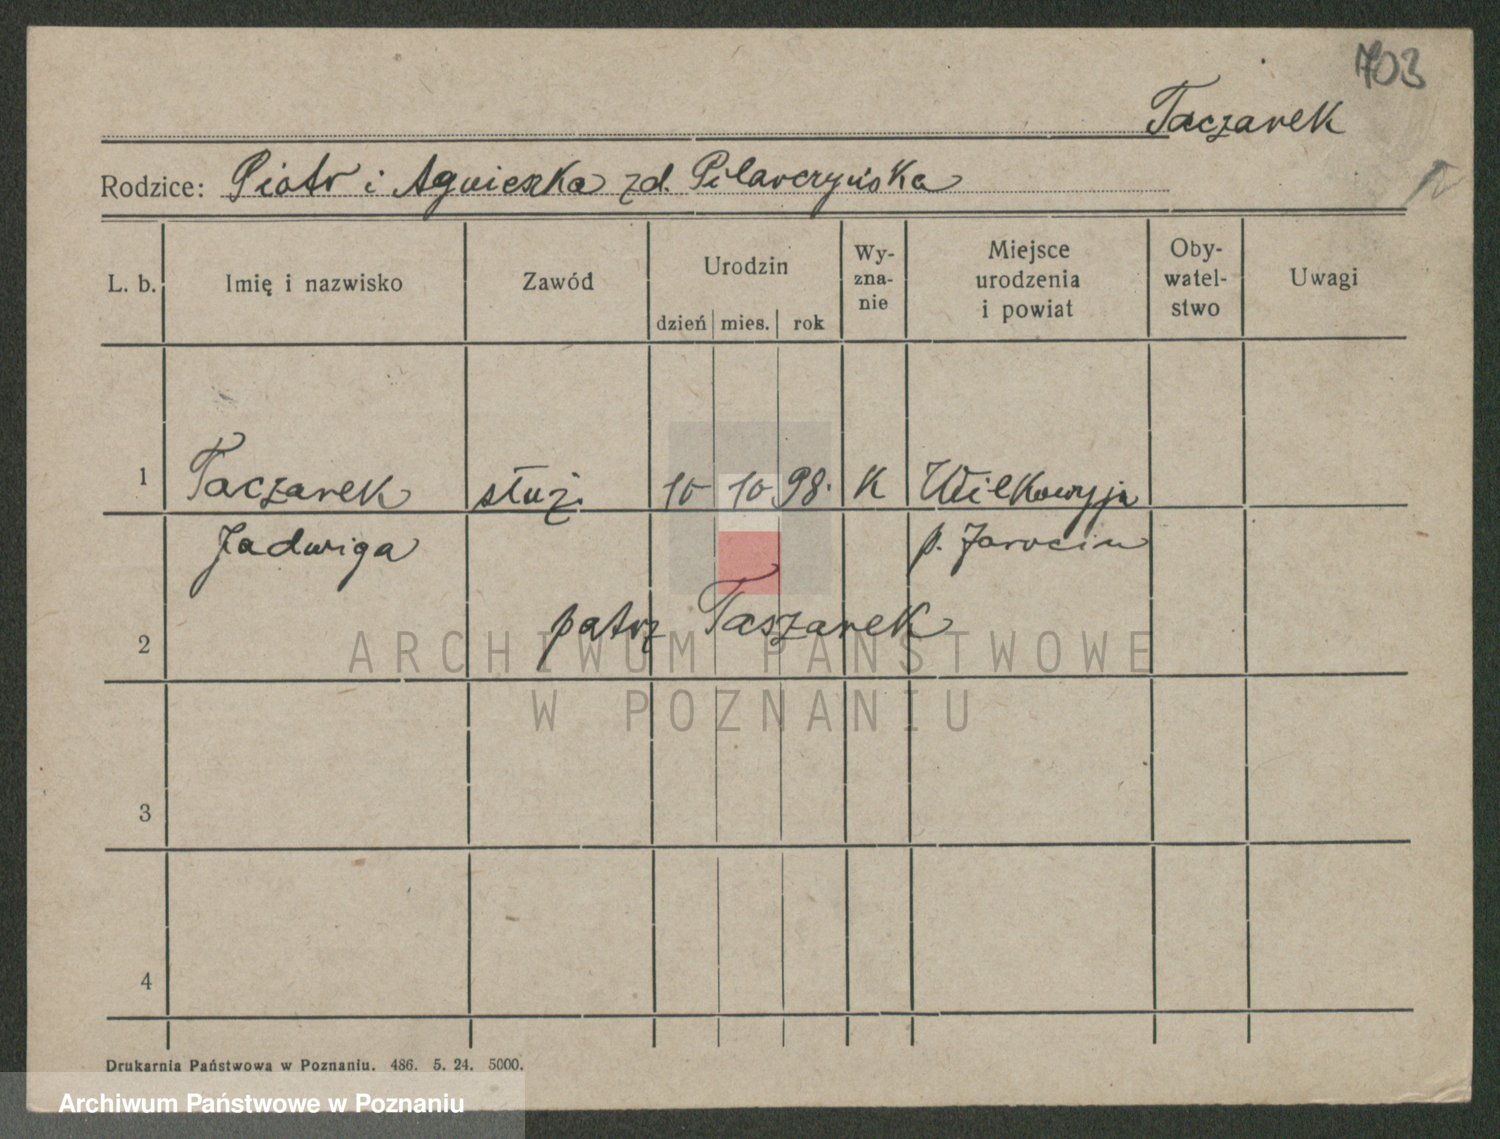 703
Taczarek
Rodzice: Piotr i Agnieszka zd. Pilarczyńska
L. b. Imię i nazwisko Zawód Urodzin dzień mies. rok Wy-zna-nie Miejsce urodzenia i powiat Oby-watel-stwo Uwagi
1 Taczarek służ. 10 10 98. K Wilkowyja
Jadwiga p. Jarocin
2 patrz Taszarek
3
4
ARCHIWUM PAŃSTWOWE
W POZNANIU
Drukarnia Państwowa w Poznaniu. 486. 5. 24. 5000.
Archiwum Państwowe w Poznaniu